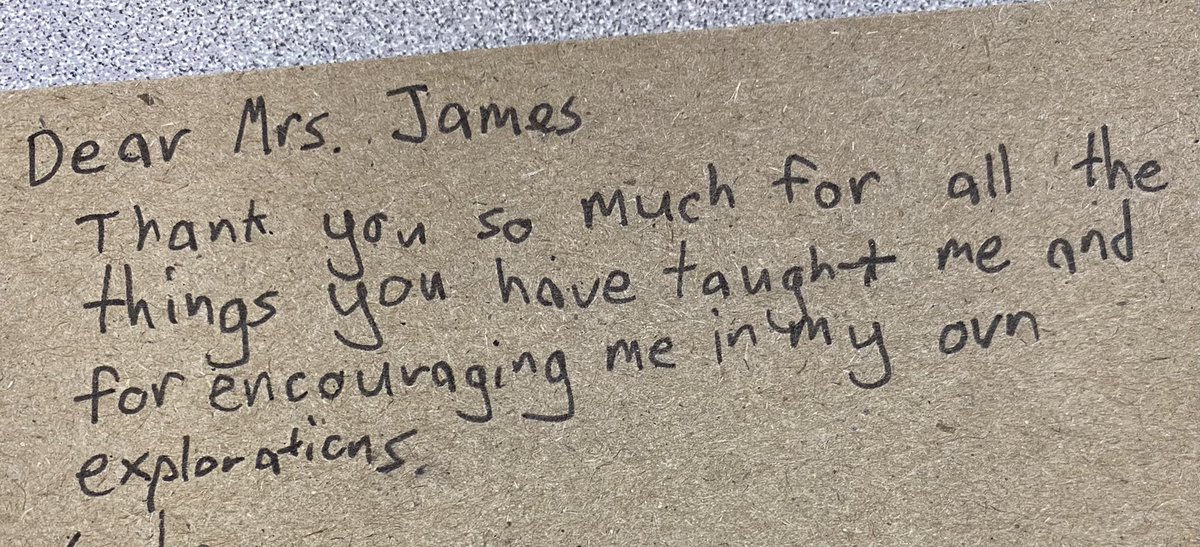 Dear Mrs. James
Thank you so much for all the
things you have taught me and
for encouraging me in my own
explorations.